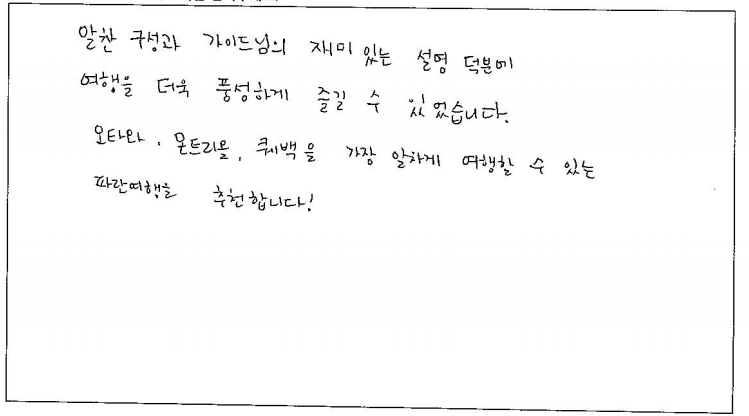 알찬 구성과 가이드님의 재미있는 설명 덕분에
여행을 더욱 풍성하게 즐길 수 있었습니다.
오타와, 몬트리올, 퀘백을 가장 알차게 여행할 수 있는
파란여행을 추천합니다!